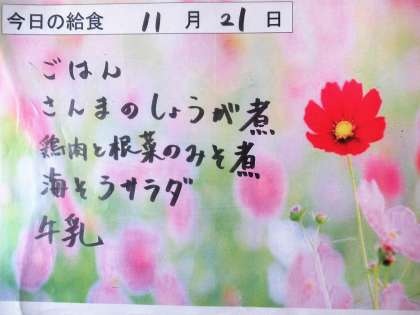 今日の給食 11月21日
ごはん
さんまのしょうが煮
鶏肉と根菜のみそ煮
海そうサラダ
牛乳